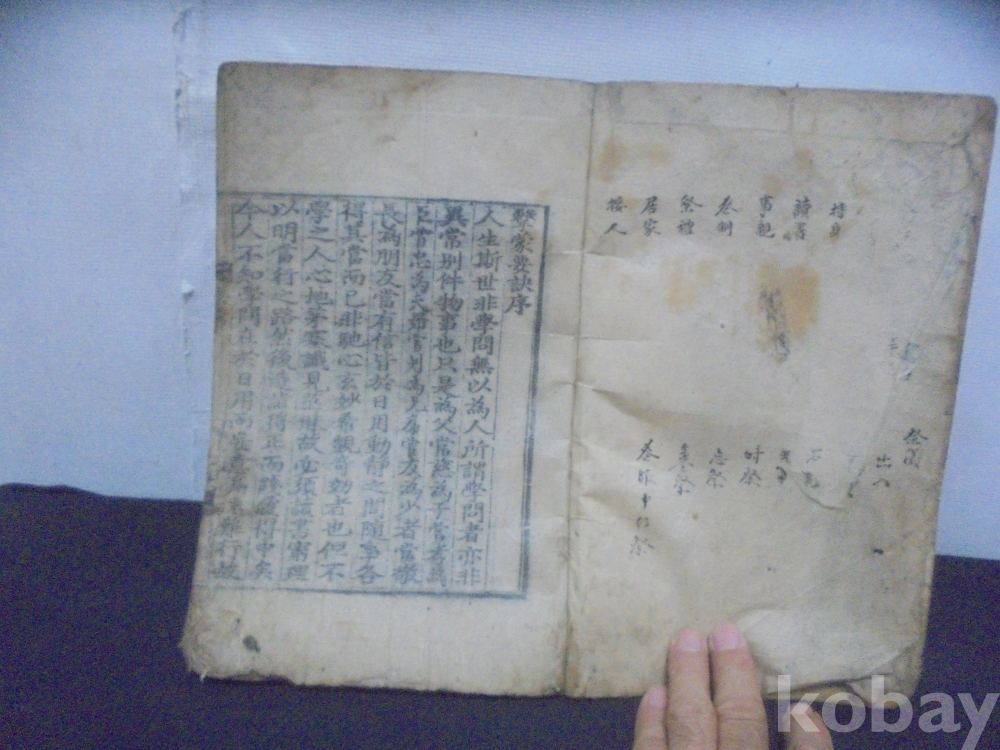 持身
讀書
事親
喪制
祭禮
居家
接人
祭圖
出入
時祭
忌祭
墓祭
喪服中行祭
擊蒙要訣序
人生斯世非學問無以為人所謂學問者亦非
異常別件物事也只是為父當慈為子當孝為
臣當忠為夫婦當別為兄弟當友為少者當敬
長為朋友當有信皆於日用動靜之間隨事各
得其當而已非馳心玄妙希覬奇效者也但不
學之人心地茅塞識見茫昧故必須讀書窮理
以明當行之路然後造詣得正而踐履得中矣
今人不知學問在於日用而妄意高遠難行故
kobay